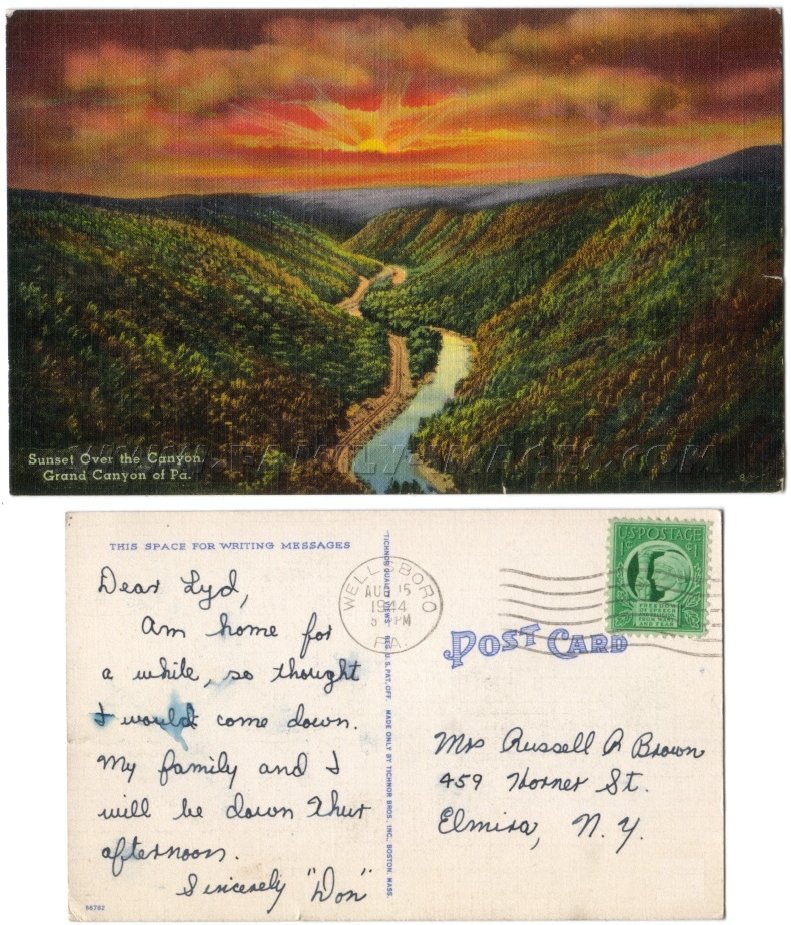 Sunset Over the Canyon.
Grand Canyon of Pa.
WWW.FAMILY-IMAGES.COM
THIS SPACE FOR WRITING MESSAGES
Dear Lyd,
Am home for
a while, so thought
I would come down.
My family and I
will be down Thur
afternoon.
Sincerely "Don"
66782
TICHNOR QUALITY VIEWS REG. U. S. PAT. OFF. MADE ONLY BY TICHNOR BROS. INC., BOSTON, MASS.
WELLSBORO
AUG 15
1944
PM
PA.
U.S. POSTAGE
1¢ 1
FREEDOM
OF SPEECH
AND RELIGION,
FROM WANT
AND FEAR
POST CARD
Mrs Russell R Brown
459 Horner St.
Elmira, N. Y.